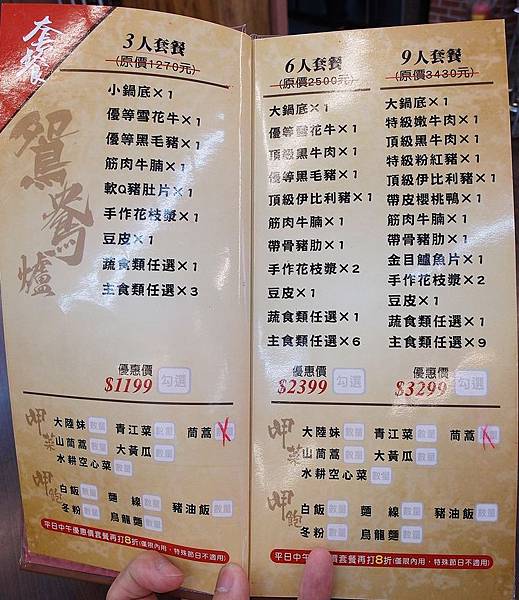 套餐
鴛鴦爐
3人套餐
(原價1270元)
小鍋底×1
優等雪花牛×1
優等黑毛豬×1
筋肉牛腩×1
軟Q豬肚片×1
手作花枝漿×1
豆皮×1
蔬食類任選×1
主食類任選×3
優惠價
$1199 勾選
呷菜
大陸妹 數量 青江菜 數量 茼蒿
山茼蒿 數量 大黃瓜 數量
水耕空心菜 數量
呷飽
白飯 數量 麵線 數量 豬油飯 數量
冬粉 數量 烏龍麵 數量
平日中午優惠價套餐再打8折(僅限內用，特殊節日不適用)
6人套餐
(原價2500元)
大鍋底×1
優等雪花牛×1
頂級黑牛肉×1
優等黑毛豬×1
頂級伊比利豬×1
筋肉牛腩×1
帶骨豬肋×1
手作花枝漿×2
豆皮×1
蔬食類任選×1
主食類任選×6
優惠價
$2399 勾選
9人套餐
(原價3430元)
大鍋底×1
特級嫩牛肉×1
頂級黑牛肉×1
特級粉紅豬×1
頂級伊比利豬×1
帶皮櫻桃鴨×1
筋肉牛腩×1
帶骨豬肋×1
金目鱸魚片×1
手作花枝漿×2
豆皮×1
蔬食類任選×1
主食類任選×9
優惠價
$3299 勾選
呷菜
大陸妹 數量 青江菜 數量 茼蒿
山茼蒿 數量 大黃瓜 數量
水耕空心菜 數量
呷飽
白飯 數量 麵線 數量 豬油飯 數量
冬粉 數量 烏龍麵 數量
平日中午 價套餐再打8折(僅限內用，特殊節日不適用)